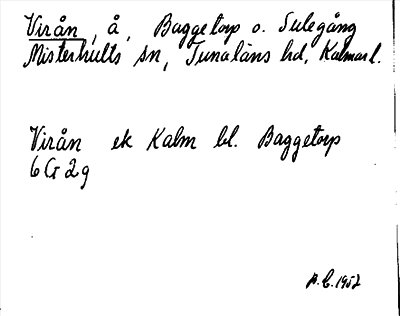 Virån, å, Baggetorp o. Sulegång
Misterhults sn, Tunaläns hd, Kalmar l.
Virån ek Kalm bl. Baggetorp
6 G 2 g
A.C. 1952